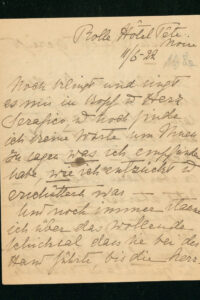 Rolle Hôtel Tête
Noire
11/6-22
Noch klingt und singt
es mir in Kopf u Herz
Serafico u noch finde
ich keine Worte um Ihnen
zu sagen was ich empfunden
habe wie ich entzückt u
erschüttert was —
Und noch immer staune
ich über das wollende
Schicksal dass sie bei der
Hand führte bis die Herr